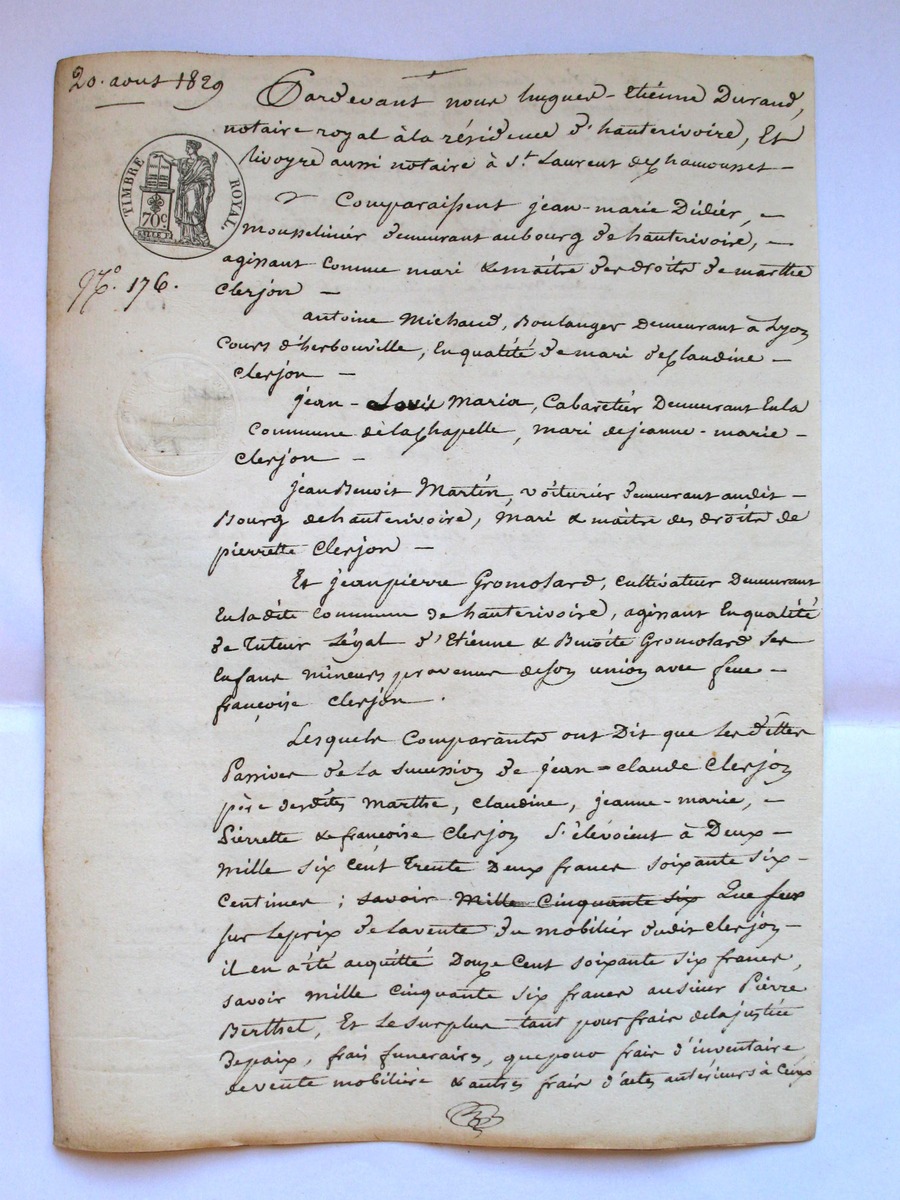 20. aout 1829
Pardevant nous hugues-Etiénne Durand,
notaire royal à la résidence d'hauterivoire, Et
livoyre aussi notaire à St. Laurent de Chamousset —
TIMBRE ROYAL.
70c
N.º 176.
Comparaissent jean-marie Didier, —
Mousselinier demeurant au bourg de hauterivoire, —
agissant comme mari & maître des droits de marthe
Clerjon —
antoine Michaud, Boulanger Demeurant à Lyon
Cours d'herbouville, En qualité de mari de Claudine —
Clerjon —
jean-Louis Maria, Cabaretier Demeurant En la
Commune de la Chapelle, mari de jeanne-marie —
Clerjon —
jean Benoit Martin, voiturier demeurant audit —
Bourg de hauterivoire, Mari & maître des droits de
pierrette Clerjon —
Et jean pierre Gromolard, cultivateur Demeurant
En la dite commune de hauterivoire, agissant En qualité
de Tuteur Légal d'Etiénne & Benoîte Gromolard ses
Enfans mineurs provenus de son union avec feue —
françoise Clerjon.
Lesquels Comparants ont Dit que les dettes
Passives de la succession de jean=claude Clerjon
père desdites Marthe, Claudine, jeanne-marie, —
Pierrette & françoise Clerjon S'élévoient à Deux —
Mille six Cent Trente Deux francs soixante six —
Centimes ; savoir Mille Cinquante six Que
sur le prix de la vente du mobilier dudit Clerjon —
il en a été acquitté Douze Cent soixante six francs,
savoir Mille Cinquante six francs au sieur Pierre
Berthet, Et le surplus tant pour frais de la justice
de paix, frais funeraires, que pour frais d'inventaire
de vente mobilière & autres frais d'actes antérieurs à Ceux